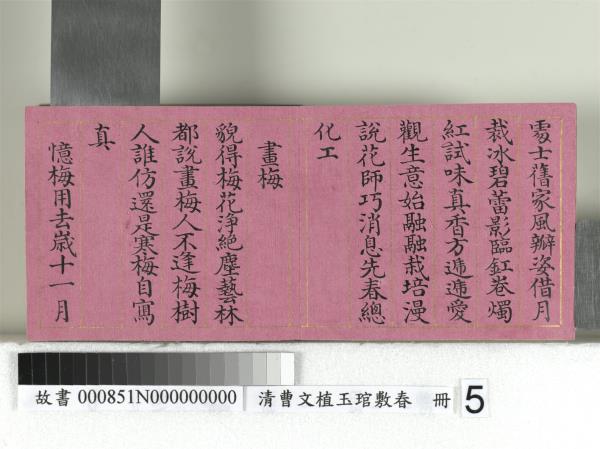 處士舊家風瓣姿借月
裁冰碧蕾影臨釭卷燭
紅試味真香方遞遞愛
觀生意始融融栽培漫
說花師巧消息先春總
化工
畫梅
貌得梅花淨絕塵藝林
都說畫梅人不逢梅樹
人誰仿還是寒梅自寫
真
憶梅用去歲十一月
故書 000851N000000000 清曹文植玉琯敷春 冊 5